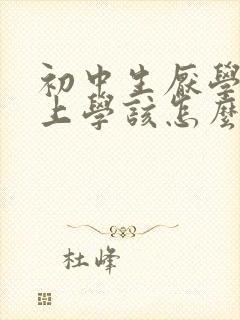 初中生厭學
上學該怎麼
杜峰